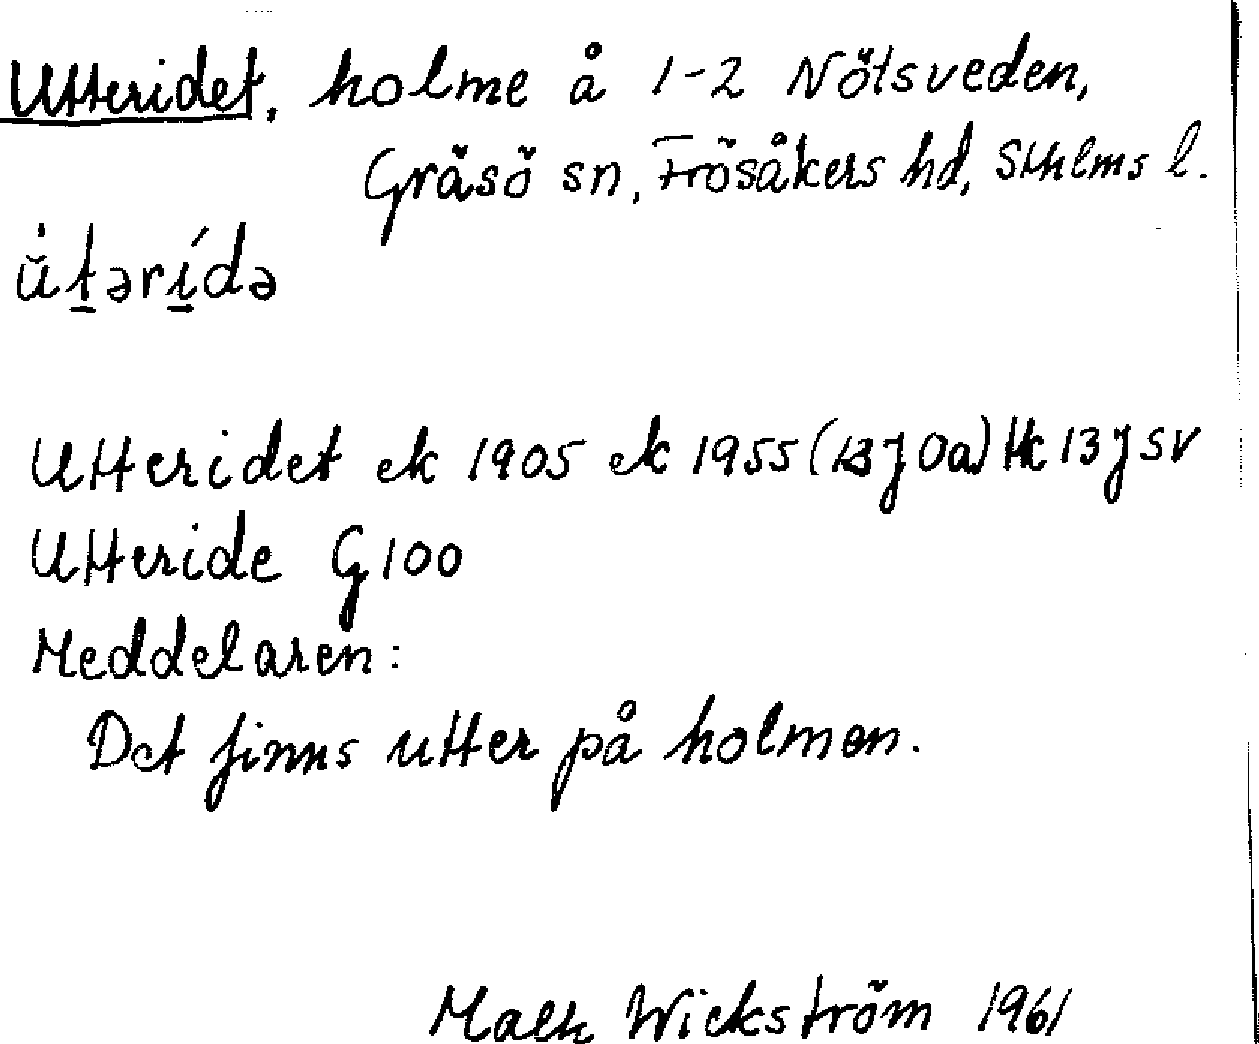 Utteridet, holme å 1-2 Nötsveden,
Gräsö sn, Frösåkers hd, Sthlms l.
ŭ̀t̲ərí̲də
Utteridet ek 1905 ek 1955 (13 J 0a) Hk 13 J SV
Utteride G 100
Meddelaren:
Det finns utter på holmen.
Wickström 1961